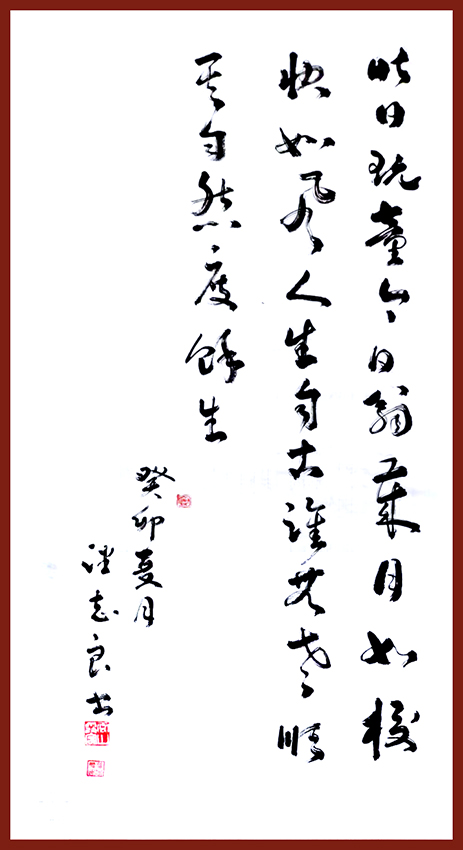 昨日玩童今日翁歲月如梭
快如風人生自古誰無老順
其自然度餘生
癸卯夏月
志良书